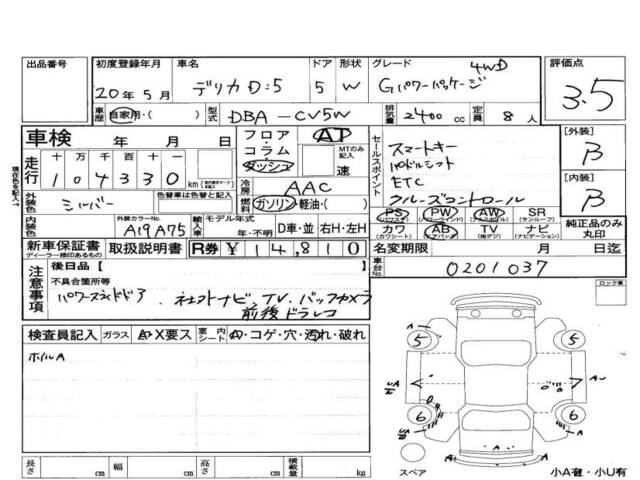 出品番号
初度登録年月
20年5月
車名
デリカD:5
ドア
5
形状
W
グレード
4WD
Gパワーパッケージ
評価点
3.5
車歴
自家用・( )
型式
DBA-CV5W
排気量
2400 cc
定員
8 人
車検
年 月 日
フロア・コラム
ダッシュ
AT
MTのみ記入
速
セールスポイント
スマートキー
パドルシフト
ETC
クルーズコントロール
[外装]
B
[内装]
B
現在色を記入→
走行
十 万 千 百 十 一
104330
km
冷房
AAC
燃料
ガソリン・軽油・( )
外装色
シルバー
色替車は色替と記入
内装色
外装カラーNo.
A19A75
輸入車
モデル年式
年・不明
D車・並
右H・左H
PS PW AW SR
(パワステ) (パワーウインド) (アルミホイル) (サンルーフ)
カワ AB TV ナビ
(カワシート) (エアバッグ) (地デジ) (ナビゲーション)
純正品のみ丸印
新車保証書
ディーラー捺印あるもの
取扱説明書
R券 ¥14,810
名変期限
月 日迄
車台No.
0201037
注意事項
後日品【
不具合箇所等
パワースライドドア、社外ナビ、TV、バックカメラ
前後ドラレコ
ロック車
検査員記入
ガラス
A・X要ス
室内
シート
A・コゲ・穴・汚れ・破れ
ホイルA
5
5
6
6
A
A
A
スペア
小A有・小U有
長さ cm
幅 cm
高さ cm
積載量 kg